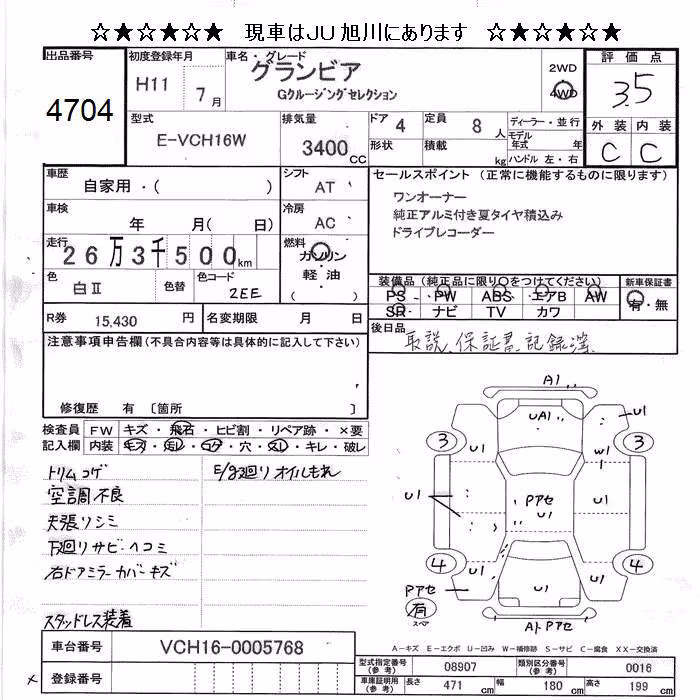 ☆★☆★☆★ 現車はJU旭川にあります ☆★☆★☆★
出品番号
4704
初度登録年月
H11 7月
車名・グレード
グランビア
Gクルージングセレクション
2WD
4WD
評価点
3.5
外装 内装
C C
型式
E-VCH16W
排気量
3400cc
ドア 4
形状
定員 8人
積載 kg
ディーラー・並行
モデル年式 年
ハンドル 左・右
車歴
自家用・( )
シフト
AT
車検
年 月( 日)
冷房
AC
走行
26万3千500km
燃料
ガソリン
軽・油
( )
色
白Ⅱ
色替
色コード
2EE
R券 15,430 円
名変期限 月 日
セールスポイント (正常に機能するものに限ります)
ワンオーナー
純正アルミ付き夏タイヤ積込み
ドライブレコーダー
装備品(純正品に限り○をつけてください)
新車保証書
PS・PW・ABS・エアB・AW
SR・ナビ TV カワ
有・無
後日品
取説、保証書、記録簿
注意事項申告欄(不具合内容等は具体的に記入して下さい)
修復歴 有 〔箇所 〕
検査員記入欄
FW キズ・飛石・ヒビ割・リペア跡・×要
内装 キズ・汚レ・コゲ・穴・スレ・キレ・破レ
トリムコゲ
空調不良
天張りシミ
下廻りサビ・ヘコミ
右ドアミラーカバーキズ
スタッドレス装着
E/g廻りオイルもれ
A1
UA1
U1
3
3
U1
W1
U1
Pアセ
U1
U1
4
4
U1
U1
U1
Pアセ
有
スペア
A1・Pアセ
車台番号
VCH16-0005768
登録番号
A-キズ E-エクボ U-凹み W-補修跡 S-サビ C-腐食 XX-交換済
型式指定番号(参考) 08907
類別区分番号(参考) 0016
車庫証明用(参考) 長さ 471cm 幅 180cm 高さ 199cm